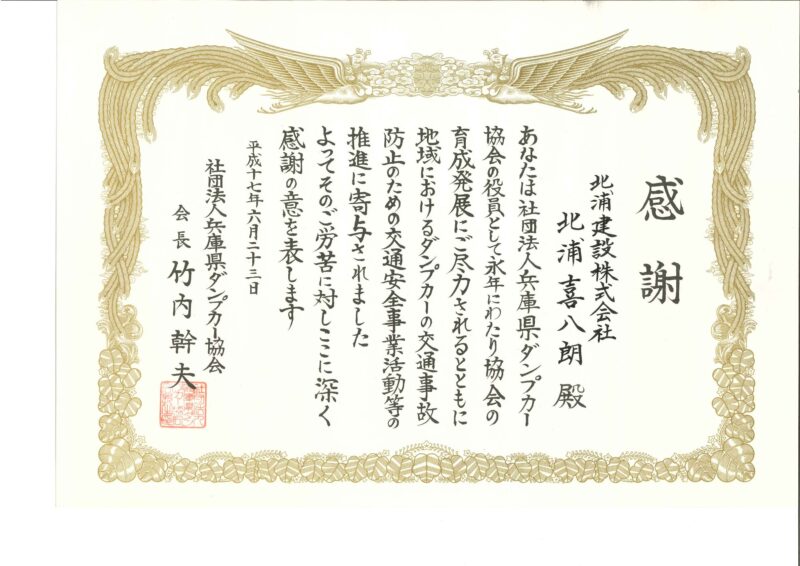 感謝
北浦建設株式会社
北浦喜八朗 殿
あなたは社団法人兵庫県ダンプカー
協会の役員として永年にわたり協会の
育成発展にご尽力されるとともに
地域におけるダンプカーの交通事故
防止のための交通安全事業活動等の
推進に寄与されました
よってそのご労苦に対しここに深く
感謝の意を表します
平成十七年六月二十三日
社団法人兵庫県ダンプカー協会
会長 竹内幹夫